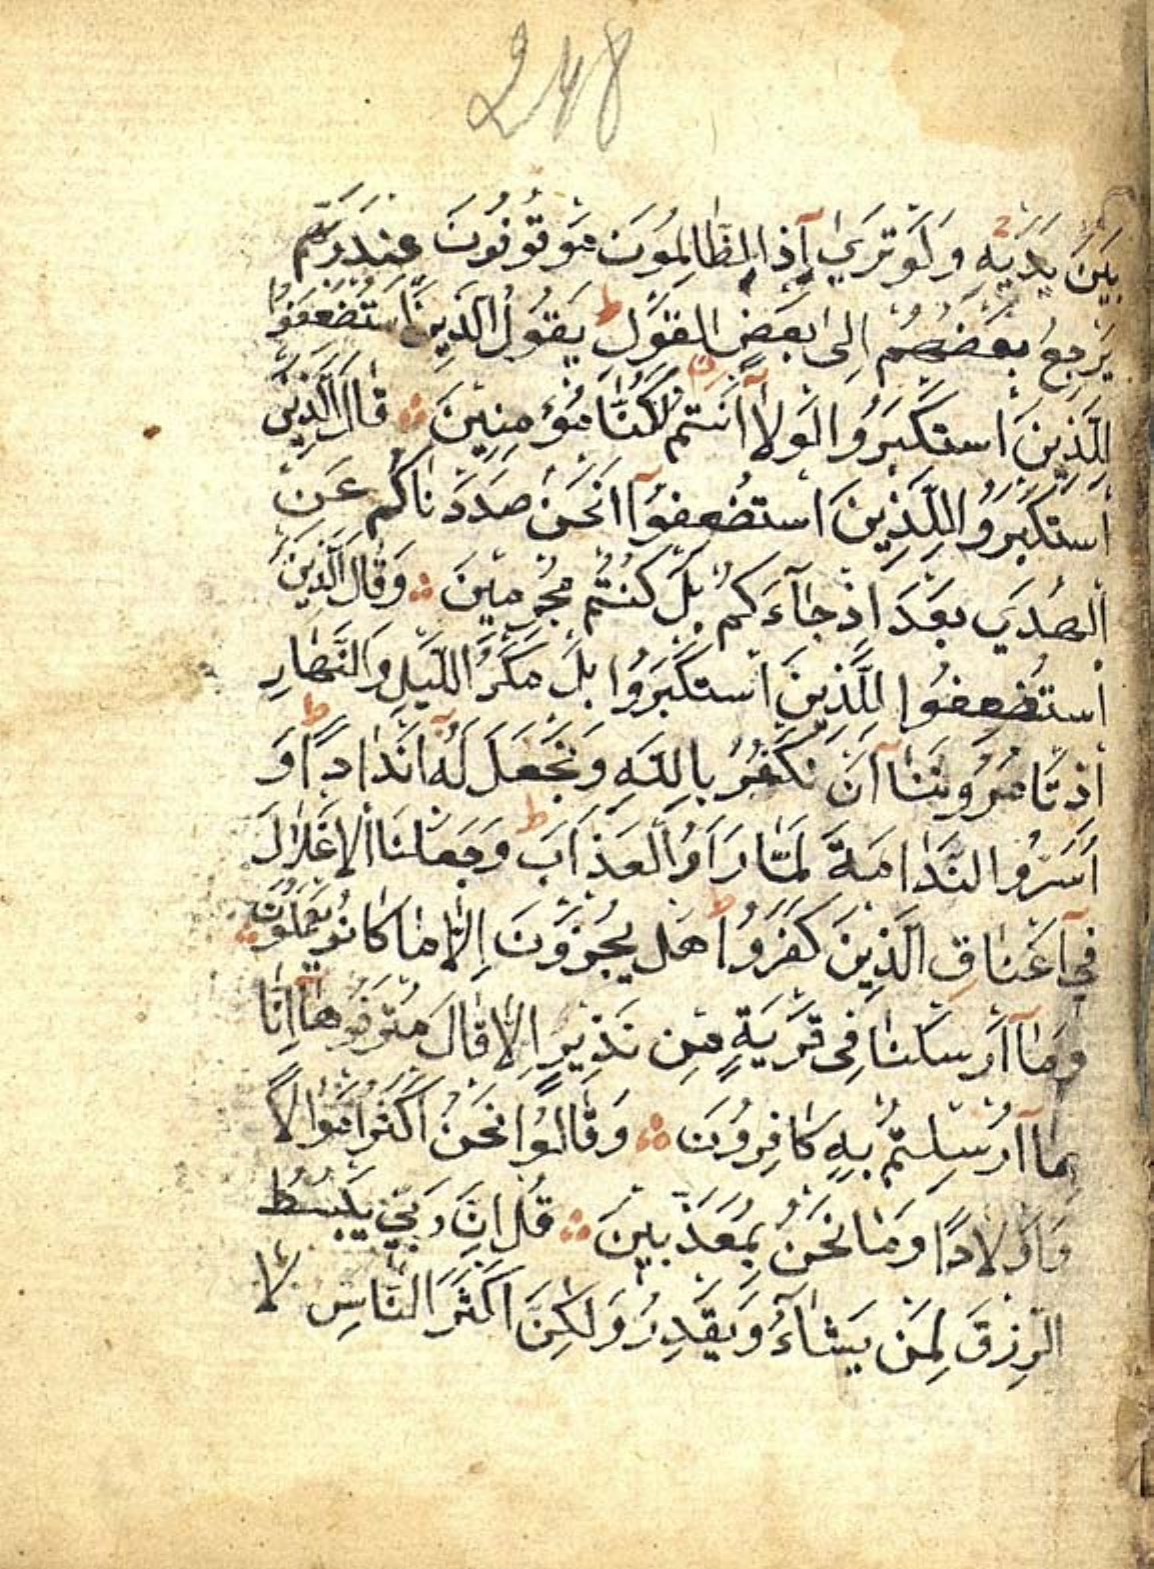 248
بَيْنَ يَدَيْهِ وَلَوْ تَرَىٰ اِذِ الظَّالِمُونَ مَوْقُوفُونَ عِنْدَ رَبِّهِمْ
يَرْجِعُ بَعْضُهُمْ اِلىٰ بَعْضٍ الْقَوْلَ ط يَقُولُ الَّذِينَ اسْتُضْعِفُوا
لِلَّذِينَ اسْتَكْبَرُوا لَوْلَا اَنْتُمْ لَكُنَّا مُؤْمِنِينَ ۞ قَالَ الَّذِينَ
اسْتَكْبَرُوا لِلَّذِينَ اسْتُضْعِفُوآ اَنَحْنُ صَدَدْنَاكُمْ عَنِ
الْهُدَي بَعْدَ اِذْ جَآءَكُمْ بَلْ كُنْتُمْ مُجْرِمِينَ ۞ وَقَالَ الَّذِينَ
اسْتُضْعِفُوا لِلَّذِينَ اسْتَكْبَرُوا بَلْ مَكْرُ اللَّيْلِ وَالنَّهَارِ
اِذْ تَامُرُونَنَآ اَنْ نَكْفُرَ بِاللّٰهِ وَنَجْعَلَ لَهُ اَنْدَادًا ط وَ
اَسَرُّوا النَّدَامَةَ لَمَّا رَاَوُا الْعَذَابَ ط وَجَعَلْنَا الْاَغْلَالَ
فِيٓ اَعْنَاقِ الَّذِينَ كَفَرُوا ط هَلْ يُجْزَوْنَ اِلَّا مَا كَانُوا يَعْمَلُونَ ۞
وَمَآ اَرْسَلْنَا فِى قَرْيَةٍ مِنْ نَذِيرٍ اِلَّا قَالَ مُتْرَفُوهَآ اِنَّا
بِمَآ اُرْسِلْتُمْ بِهِ كَافِرُونَ ۞ وَقَالُوا نَحْنُ اَكْثَرُ اَمْوَالًا
وَاَوْلَادًا وَمَا نَحْنُ بِمُعَذَّبِينَ ۞ قُلْ اِنَّ رَبِّي يَبْسُطُ
الرِّزْقَ لِمَنْ يَشَآءُ وَيَقْدِرُ وَلَكِنَّ اَكْثَرَ النَّاسِ لَا